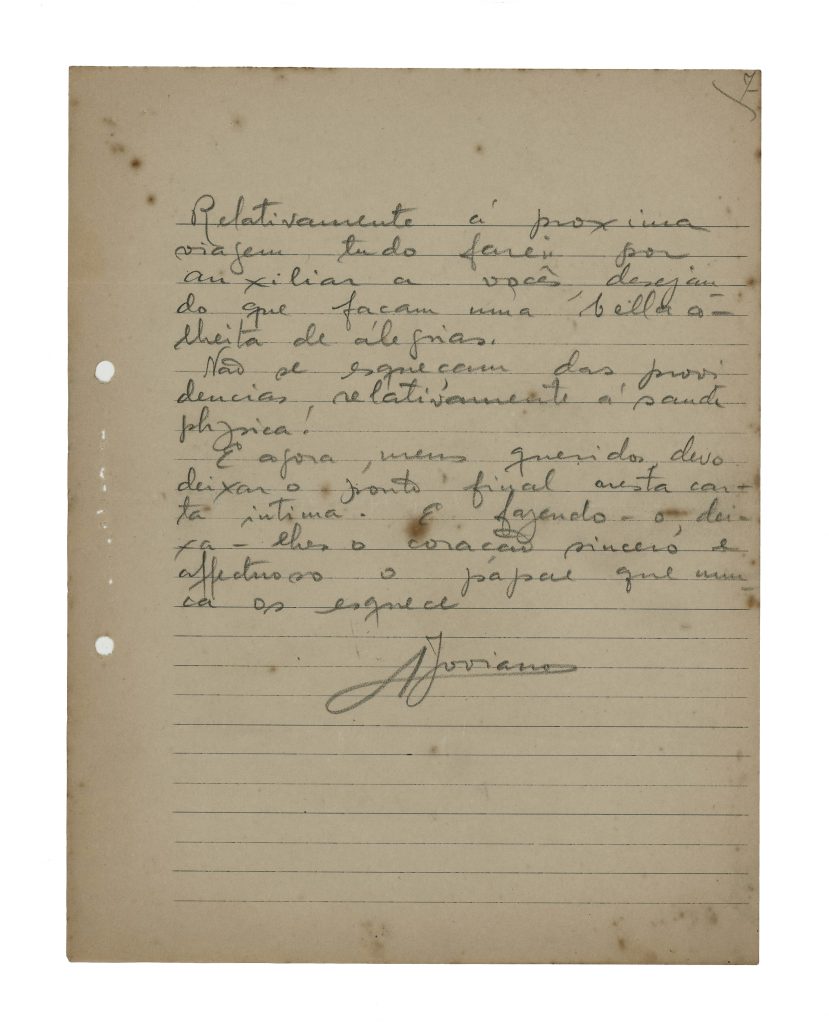 7
Relativamente á proxima
viagem, tudo farei por
auxiliar a vocês, desejan
do que façam uma bella co-
lheita de álegrias.
Não se esqueçam das provi
dencias relativamente á saude
physica!
E agora, meus queridos, devo
deixar o ponto final nesta car-
ta intima. E fazendo-o, dei-
xa-lhes o coração sincero e
affectuoso o papae que nun-
ca os esquece
AJoviano